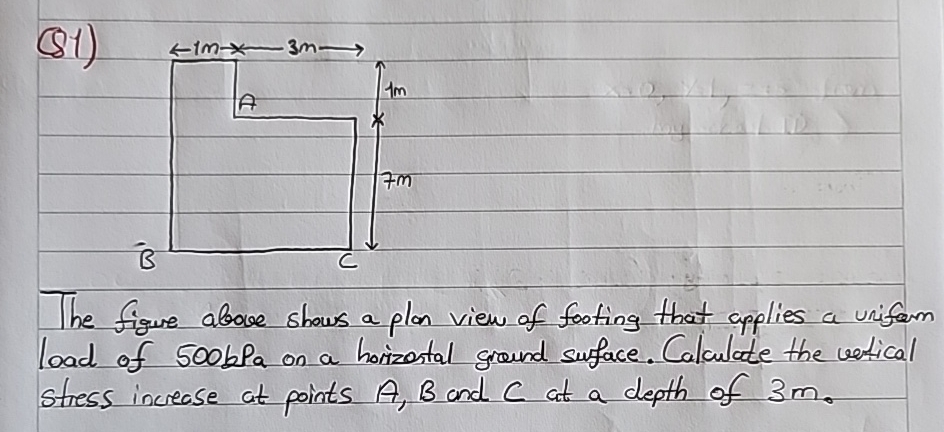 Q1)
1m 3m
A
1m
7m
B
C
The figure above shows a plan view of footing that applies a uniform
load of 500kPa on a horizontal ground surface. Calculate the vertical
stress increase at points A, B and C at a depth of 3m.